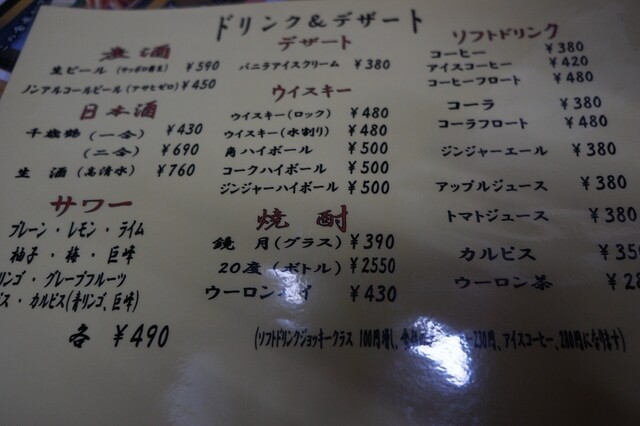 ドリンク＆デザート
麦酒
生ビール (サッポロ黒生) ￥590
ノンアルコールビール (アサヒゼロ) ￥450
日本酒
千歳鶴 (一合) ￥430
(二合) ￥690
生 酒 (高清水) ￥760
サワー
プレーン・レモン・ライム
柚子・梅・巨峰
リンゴ・グレープフルーツ
ス・カルピス(青リンゴ、巨峰)
各 ￥490
デザート
バニラアイスクリーム ￥380
ウイスキー
ウイスキー(ロック) ￥480
ウイスキー(水割り) ￥480
角ハイボール ￥500
コークハイボール ￥500
ジンジャーハイボール ￥500
焼 酎
鏡 月(グラス) ￥390
20度 (ボトル) ￥2550
ウーロン ￥430
ソフトドリンク
コーヒー ￥380
アイスコーヒー ￥420
コーヒーフロート ￥480
コーラ ￥380
コーラフロート ￥480
ジンジャーエール ￥380
アップルジュース ￥380
トマトジュース ￥380
カルピス ￥35
ウーロン茶 ￥28
(ソフトドリンクジョッキーグラス 100円増し、 230円、アイスコーヒー、280円になります)